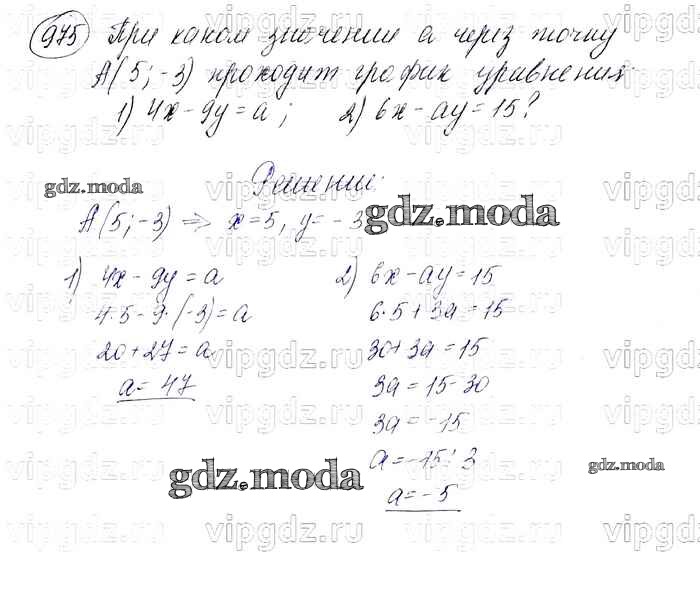 975 При каком значении a через точку
A(5;-3) проходит график уравнения:
1) 4x-9y=a; 2) 6x-ay=15?
Решение:
gdz.moda
A(5;-3) => x=5, y=-3
gdz.moda
1) 4x-9y=a
4·5-9·(-3)=a
20+27=a
a=47
2) 6x-ay=15
6·5+3a=15
30+3a=15
3a=15-30
3a=-15
a=-15:3
a=-5
gdz.moda
gdz.moda
vipgdz.ru